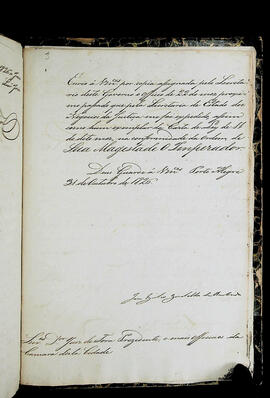 3
Envio á Vm.ces por copia assignada pelo Secreta
rio deste Governo o Officio de 22 do mez proxi
mo passado que pela Secretaria de Estado dos
Negocios da Justiça me foi expedido, assim
como hum exemplar da Carta de Ley de 11
de dito mez, na conformidade da Ordem de
Sua Magestade O Imperador.
Deus Guarde á Vm.ces Porto Alegre
31 de Outubro de 1826.
Snr.es Dr. Juiz de Fora Prezidente, e mais Officiaes da
Camara desta Cidade